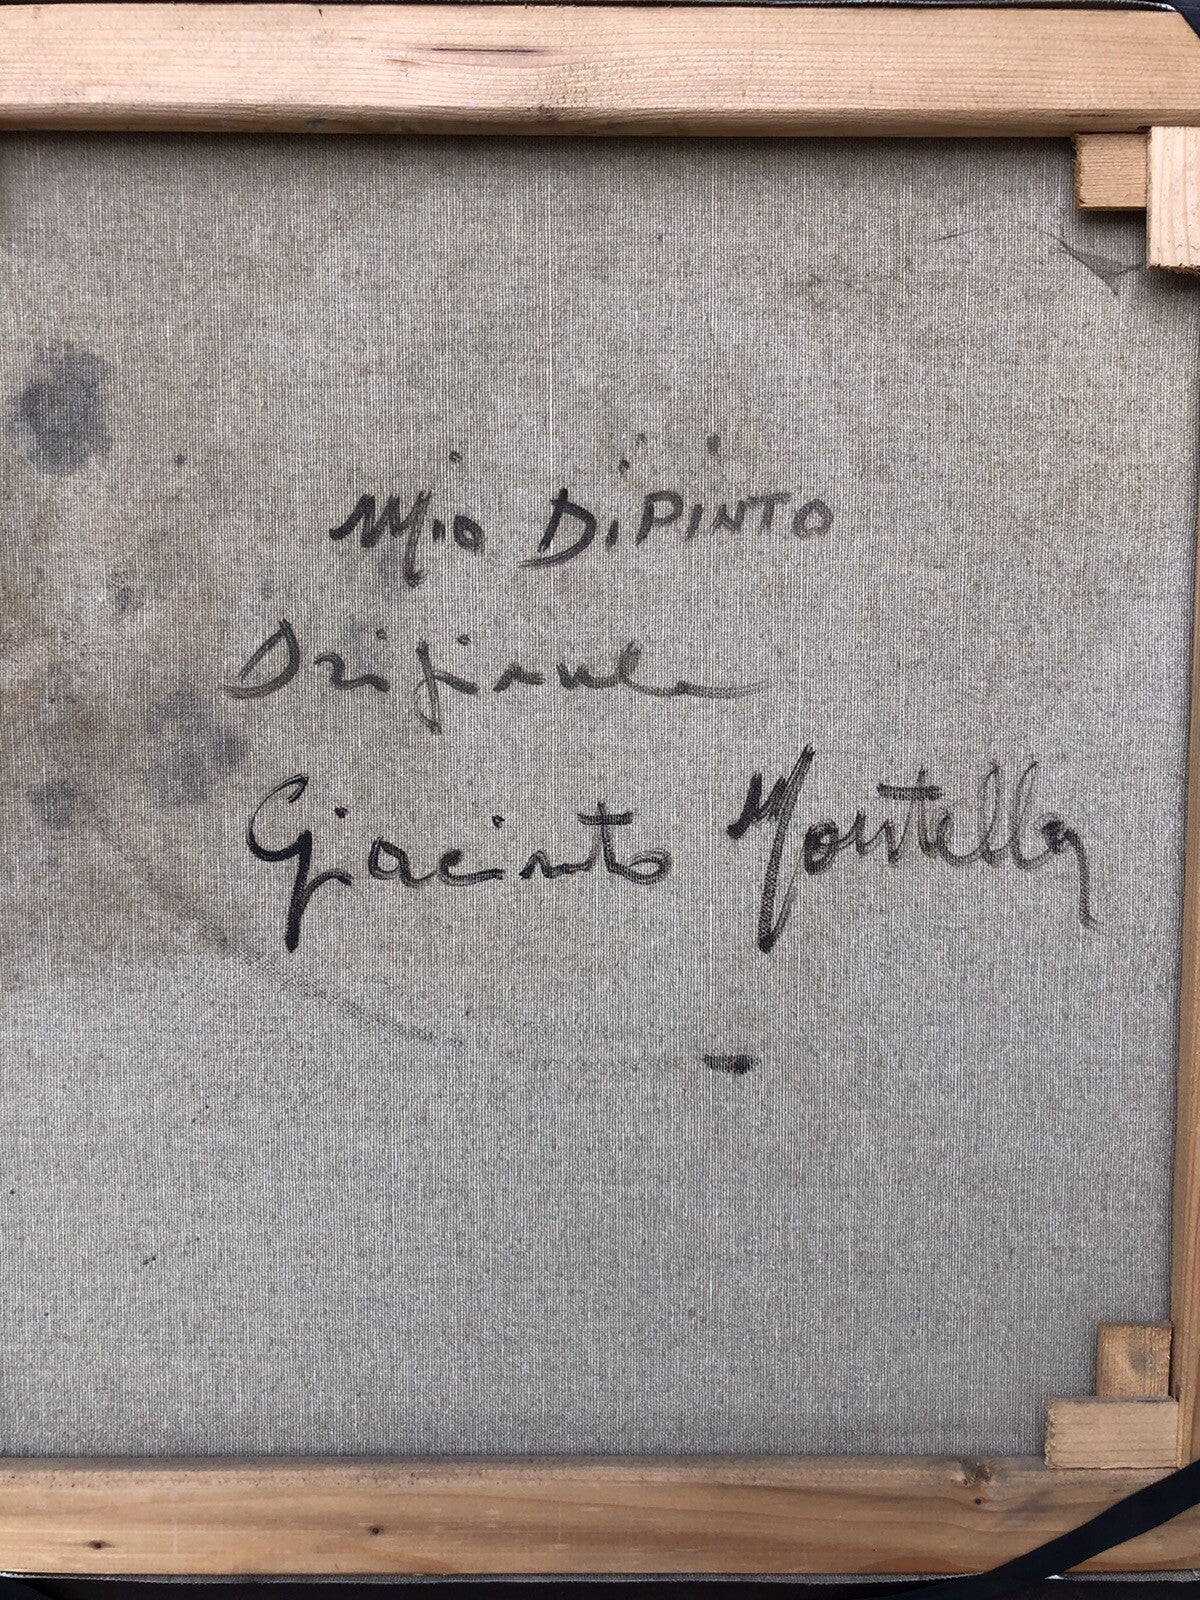 Mio DiPINTO
Originale
Giacinto Montella